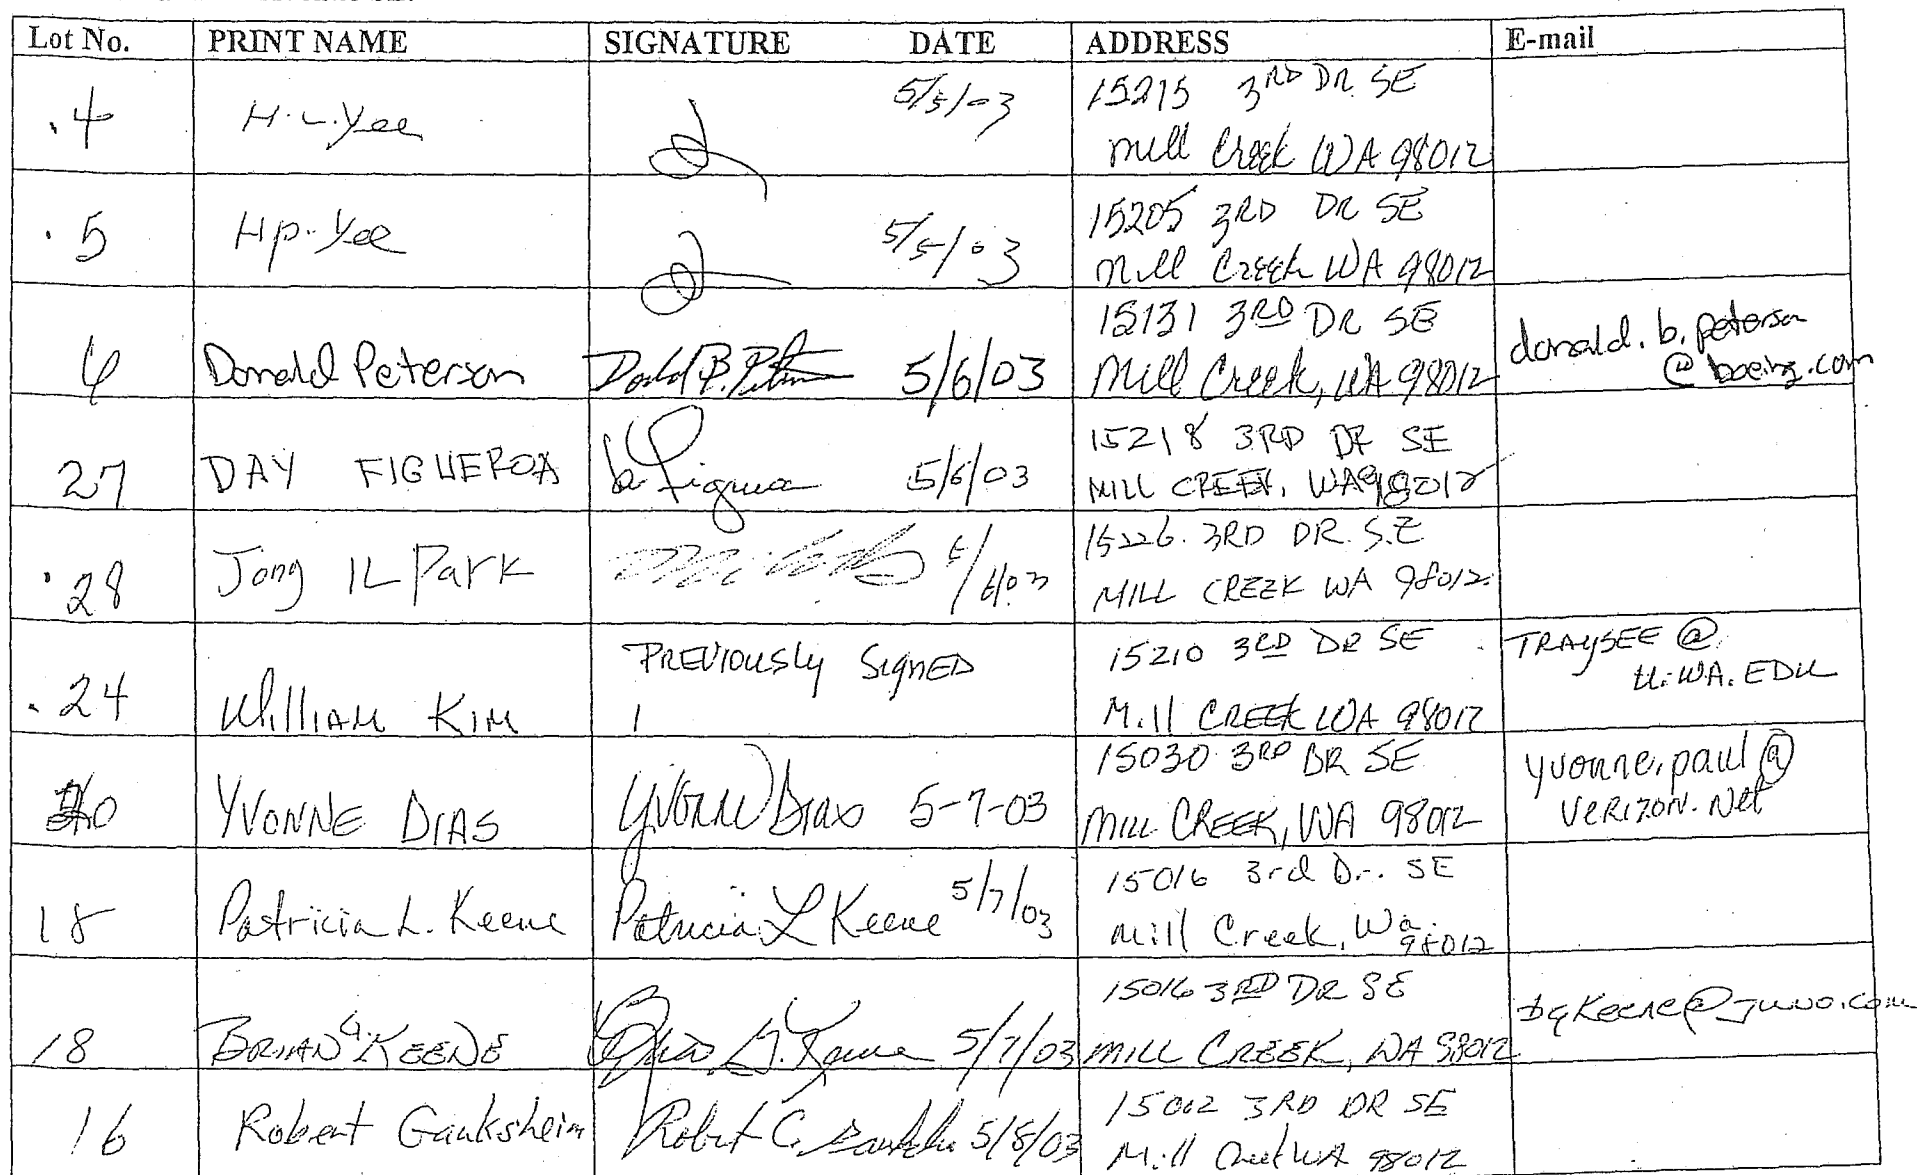 Lot No. PRINT NAME SIGNATURE DATE ADDRESS E-mail
.4 H.L.Yee 5/5/03 15215 3RD DR. SE
Mill Creek WA 98012
.5 Hp.Yee 5/5/03 15205 3RD DR SE
Mill Creek WA 98012
6 Donald Peterson Donald B. Peterson 5/6/03 15131 3RD DR SE
Mill Creek, WA 98012
donald.b.peterson
@boeing.com
27 DAY FIGUEROA 5/6/03 15218 3RD DR SE
MILL CREEK, WA 98012
.28 Jong IL Park 5/6/03 15226. 3RD DR. S.E
MILL CREEK WA 98012.
.24 William Kim PREVIOUSLY SIGNED 15210 3RD DR SE
Mill CREEK WA 98012
TRAYSEE @
U.WA.EDU
YVONNE DIAS Yvonne Dias 5-7-03 15030 3RD DR SE
MILL CREEK, WA 98012
yvonne.paul@
VERIZON.Net
18 Patricia L. Keene Patricia L Keene 5/7/03 15016 3rd Dr. SE
Mill Creek, Wa.
98012
18 BRIAN G. KEENE Brian G. Keene 5/7/03 15016 3RD DR SE
MILL CREEK, WA 98012
bgKeene@juno.com
16 Robert Gauksheim Robert C. 5/8/03 15012 3RD DR SE
Mill Creek WA 98012